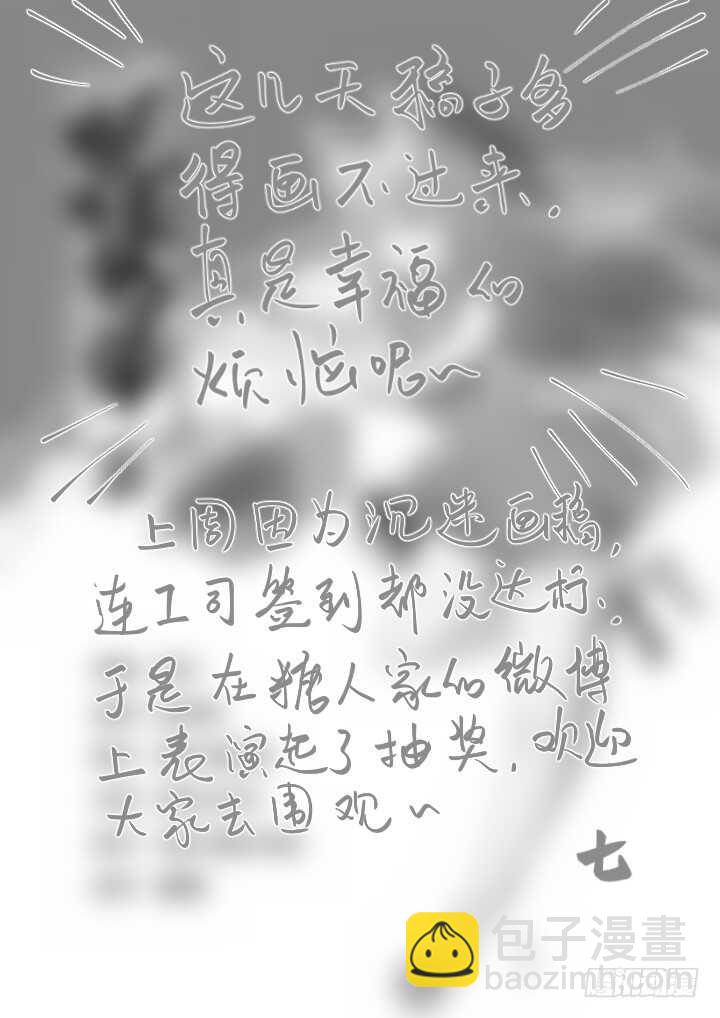 这几天稿子多
得画不过来.
真是幸福的
烦恼呢~
上周因为沉迷画稿,
连工司签到都没达标..
于是在糖人家的微博
上表演起了抽奖.欢迎
大家去围观~
七
包子漫畫
baozimh.com